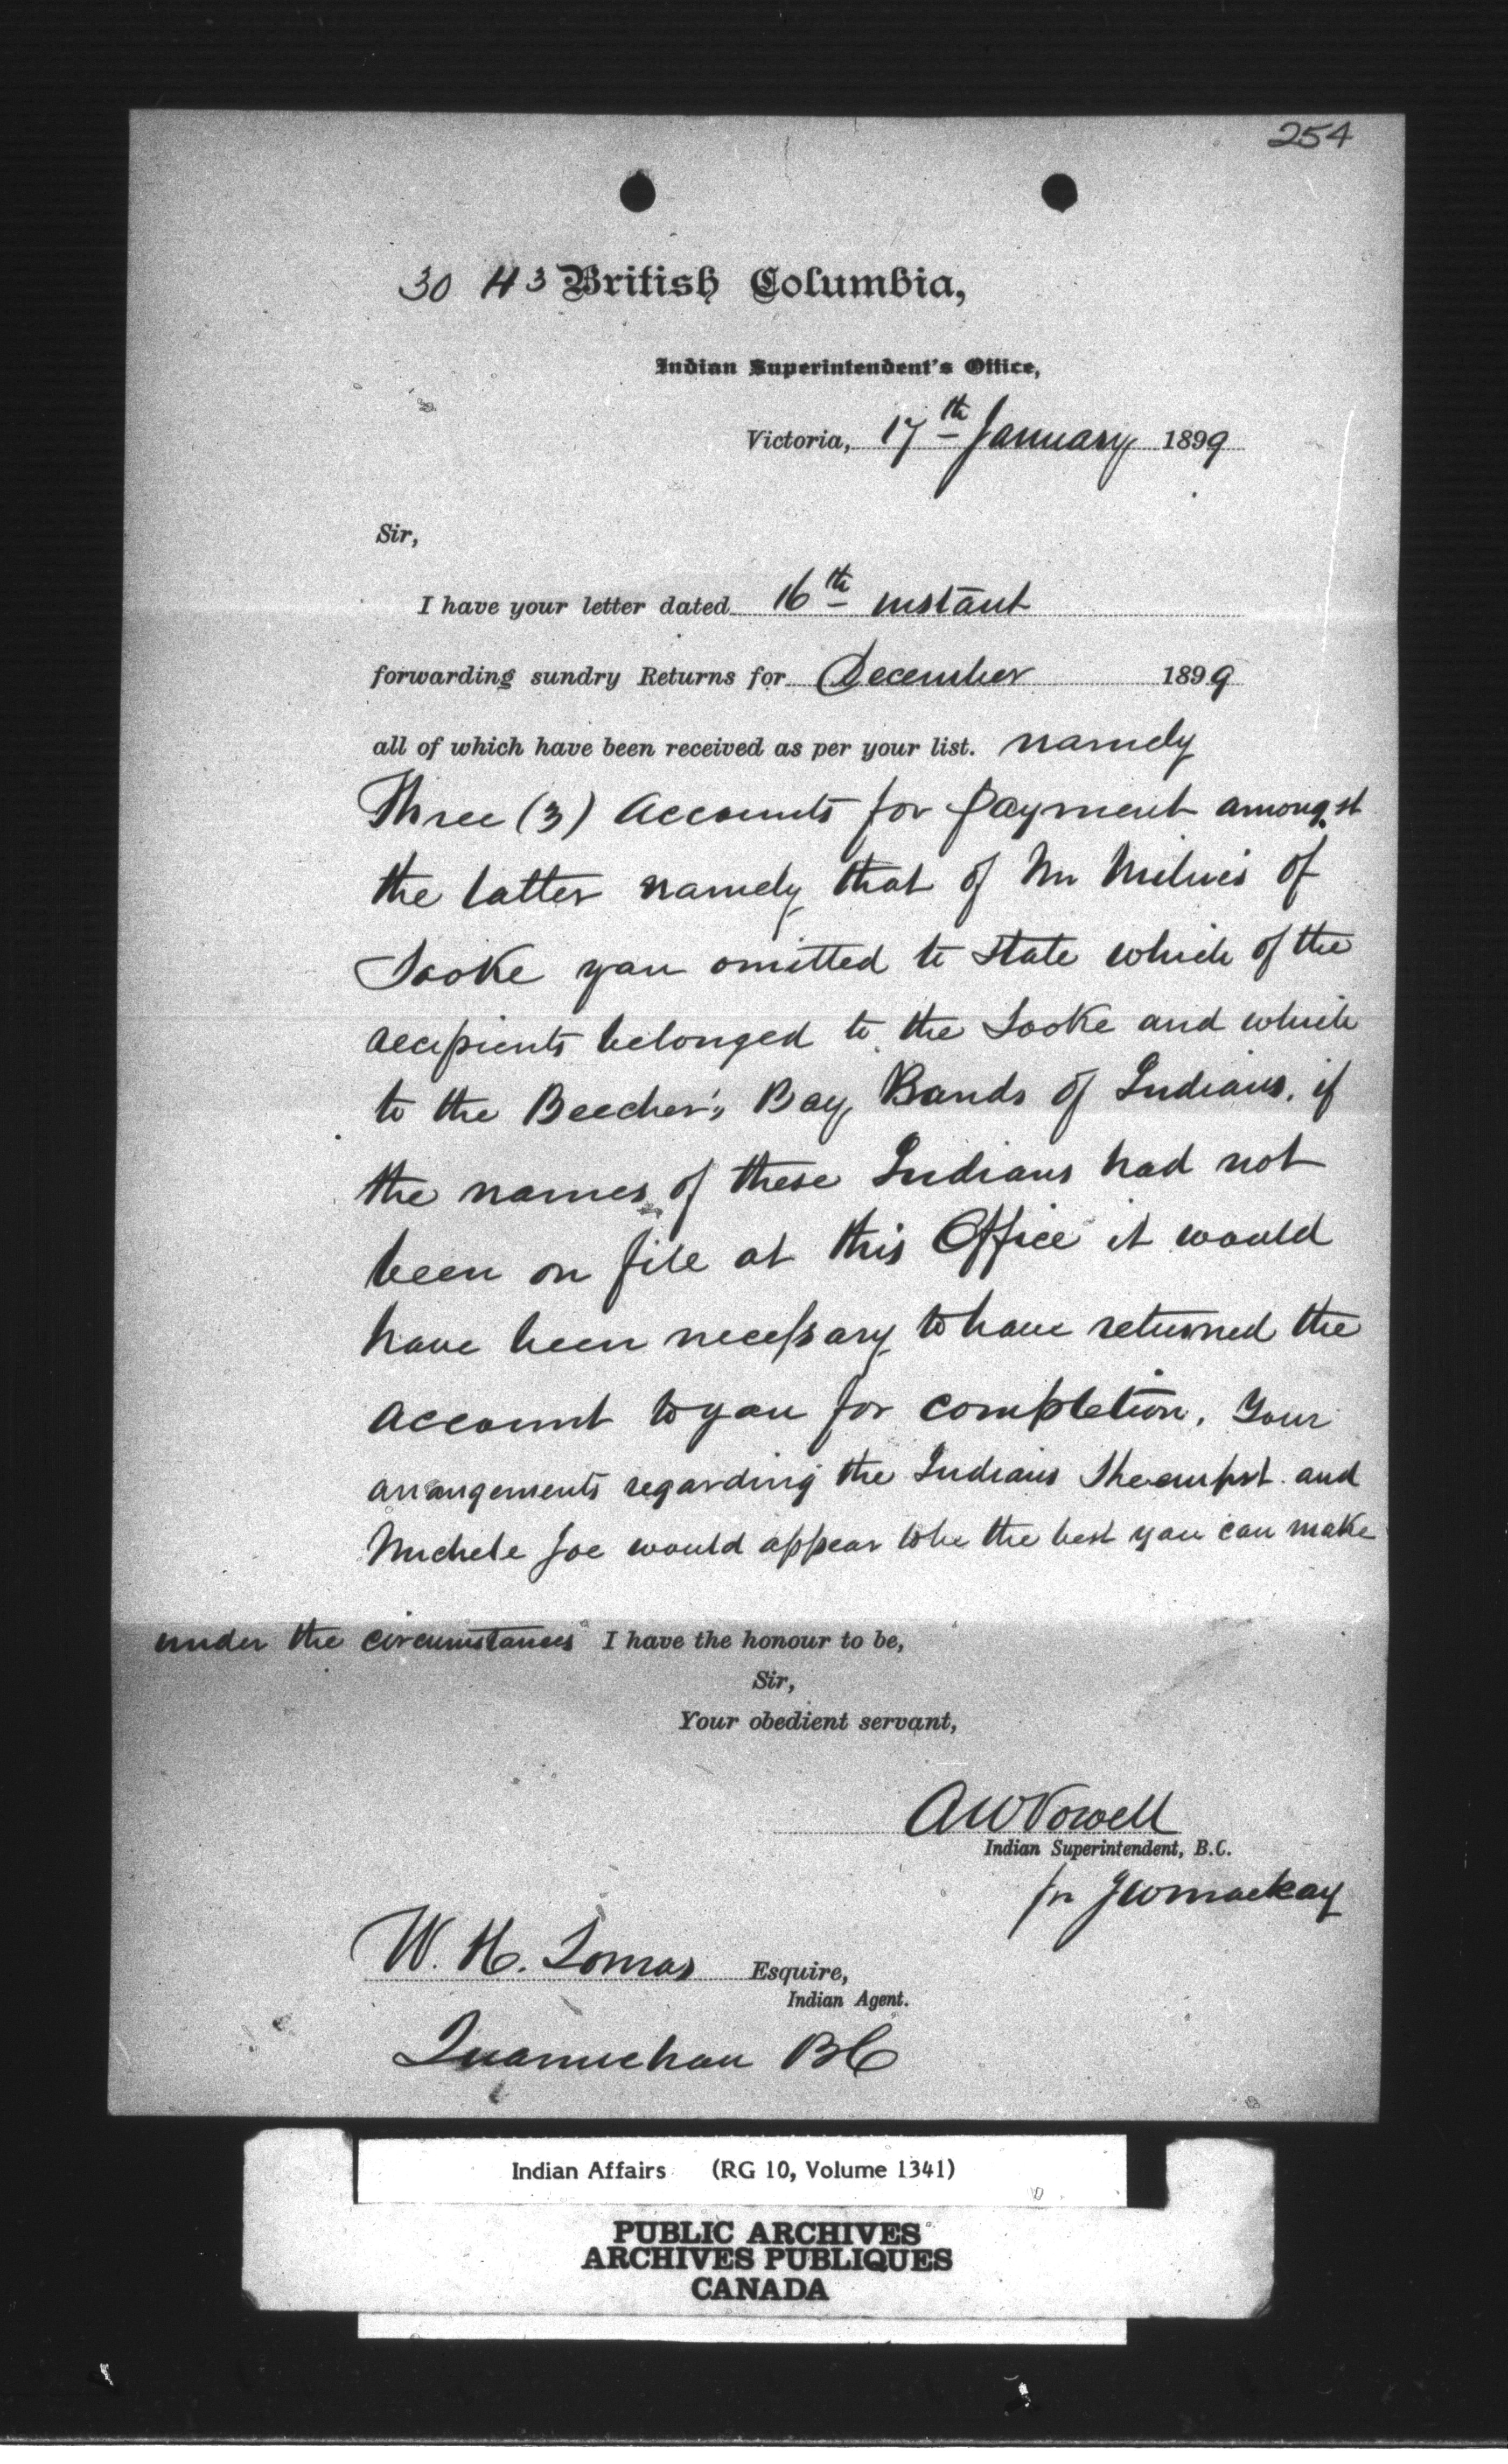 254
30 H3 British Columbia,
Indian Superintendent's Office,
Victoria, 17th January 1899
Sir,
I have your letter dated 16th instant
forwarding sundry Returns for December 1899
all of which have been received as per your list. namely
Three (3) Accounts for payment amongst
the latter namely that of Mr Milne's of
Sooke you omitted to state which of the
recipients belonged to the Sooke and which
to the Beecher's Bay Bands of Indians, if
the names of these Indians had not
been on file at this Office it would
have been necessary to have returned the
account to you for completion. Your
arrangements regarding the Indians and
Michele Joe would appear to be the best you can make
under the circumstances I have the honour to be,
Sir,
Your obedient servant,
AWVowell
Indian Superintendent, B.C.
for JWMackay
W. H. Lomas Esquire,
Indian Agent.
Quamichan BC
Indian Affairs (RG 10, Volume 1341)
PUBLIC ARCHIVES
ARCHIVES PUBLIQUES
CANADA